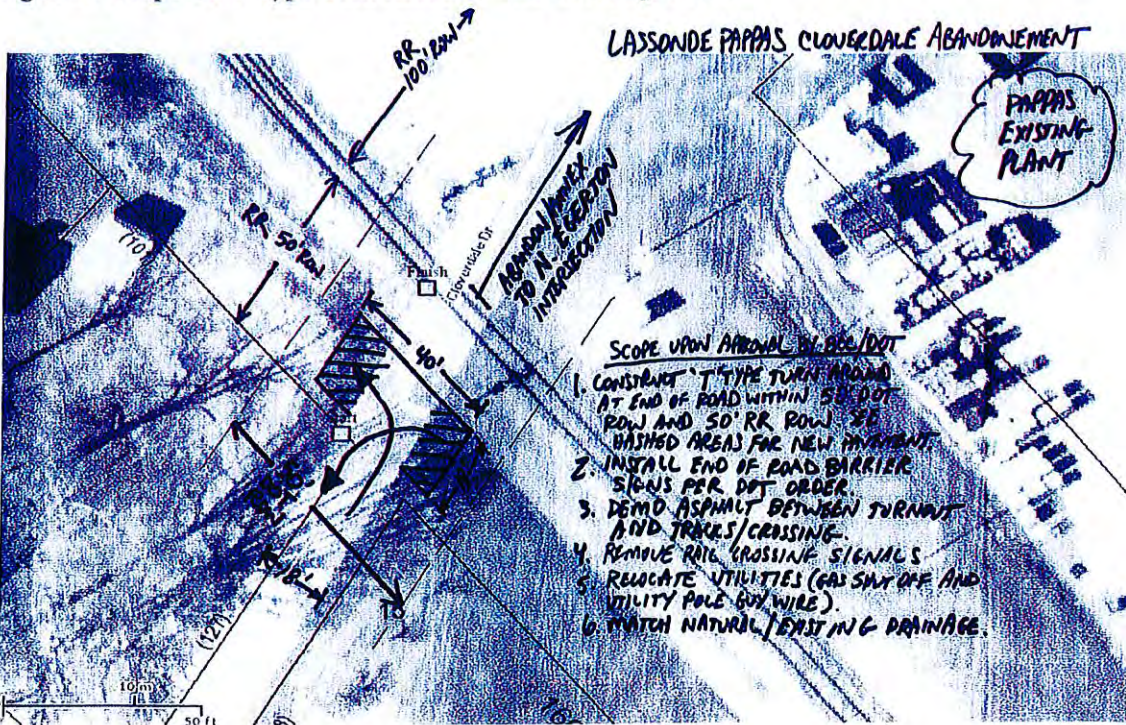 LASSONDE PAPPAS CLOVERDALE ABANDONEMENT
RR
100' ROW →
PAPPAS
EXISTING
PLANT
ABANDON/ANNEX
TO N. EGERTON
INTERSECTION
RR 50' ROW
(10)
Finish
Cloverdale Dr
40'
SCOPE UPON APPROVAL BY BCC/DOT
1. CONSTRUCT 'T' TYPE TURN AROUND
AT END OF ROAD WITHIN 50' DOT
ROW AND 50' RR ROW
HASHED AREAS FOR NEW PAVEMENT
2. INSTALL END OF ROAD BARRIER
SIGNS PER DOT ORDER.
3. DEMO ASPHALT BETWEEN TURNOUT
AND TRACKS/CROSSING.
4. REMOVE RAIL CROSSING SIGNALS
5 RELOCATE UTILITIES (GAS SHUT OFF AND
UTILITY POLE GUY WIRE).
6. MATCH NATURAL/EXISTING DRAINAGE.
18'
(127)
10 m
50 ft